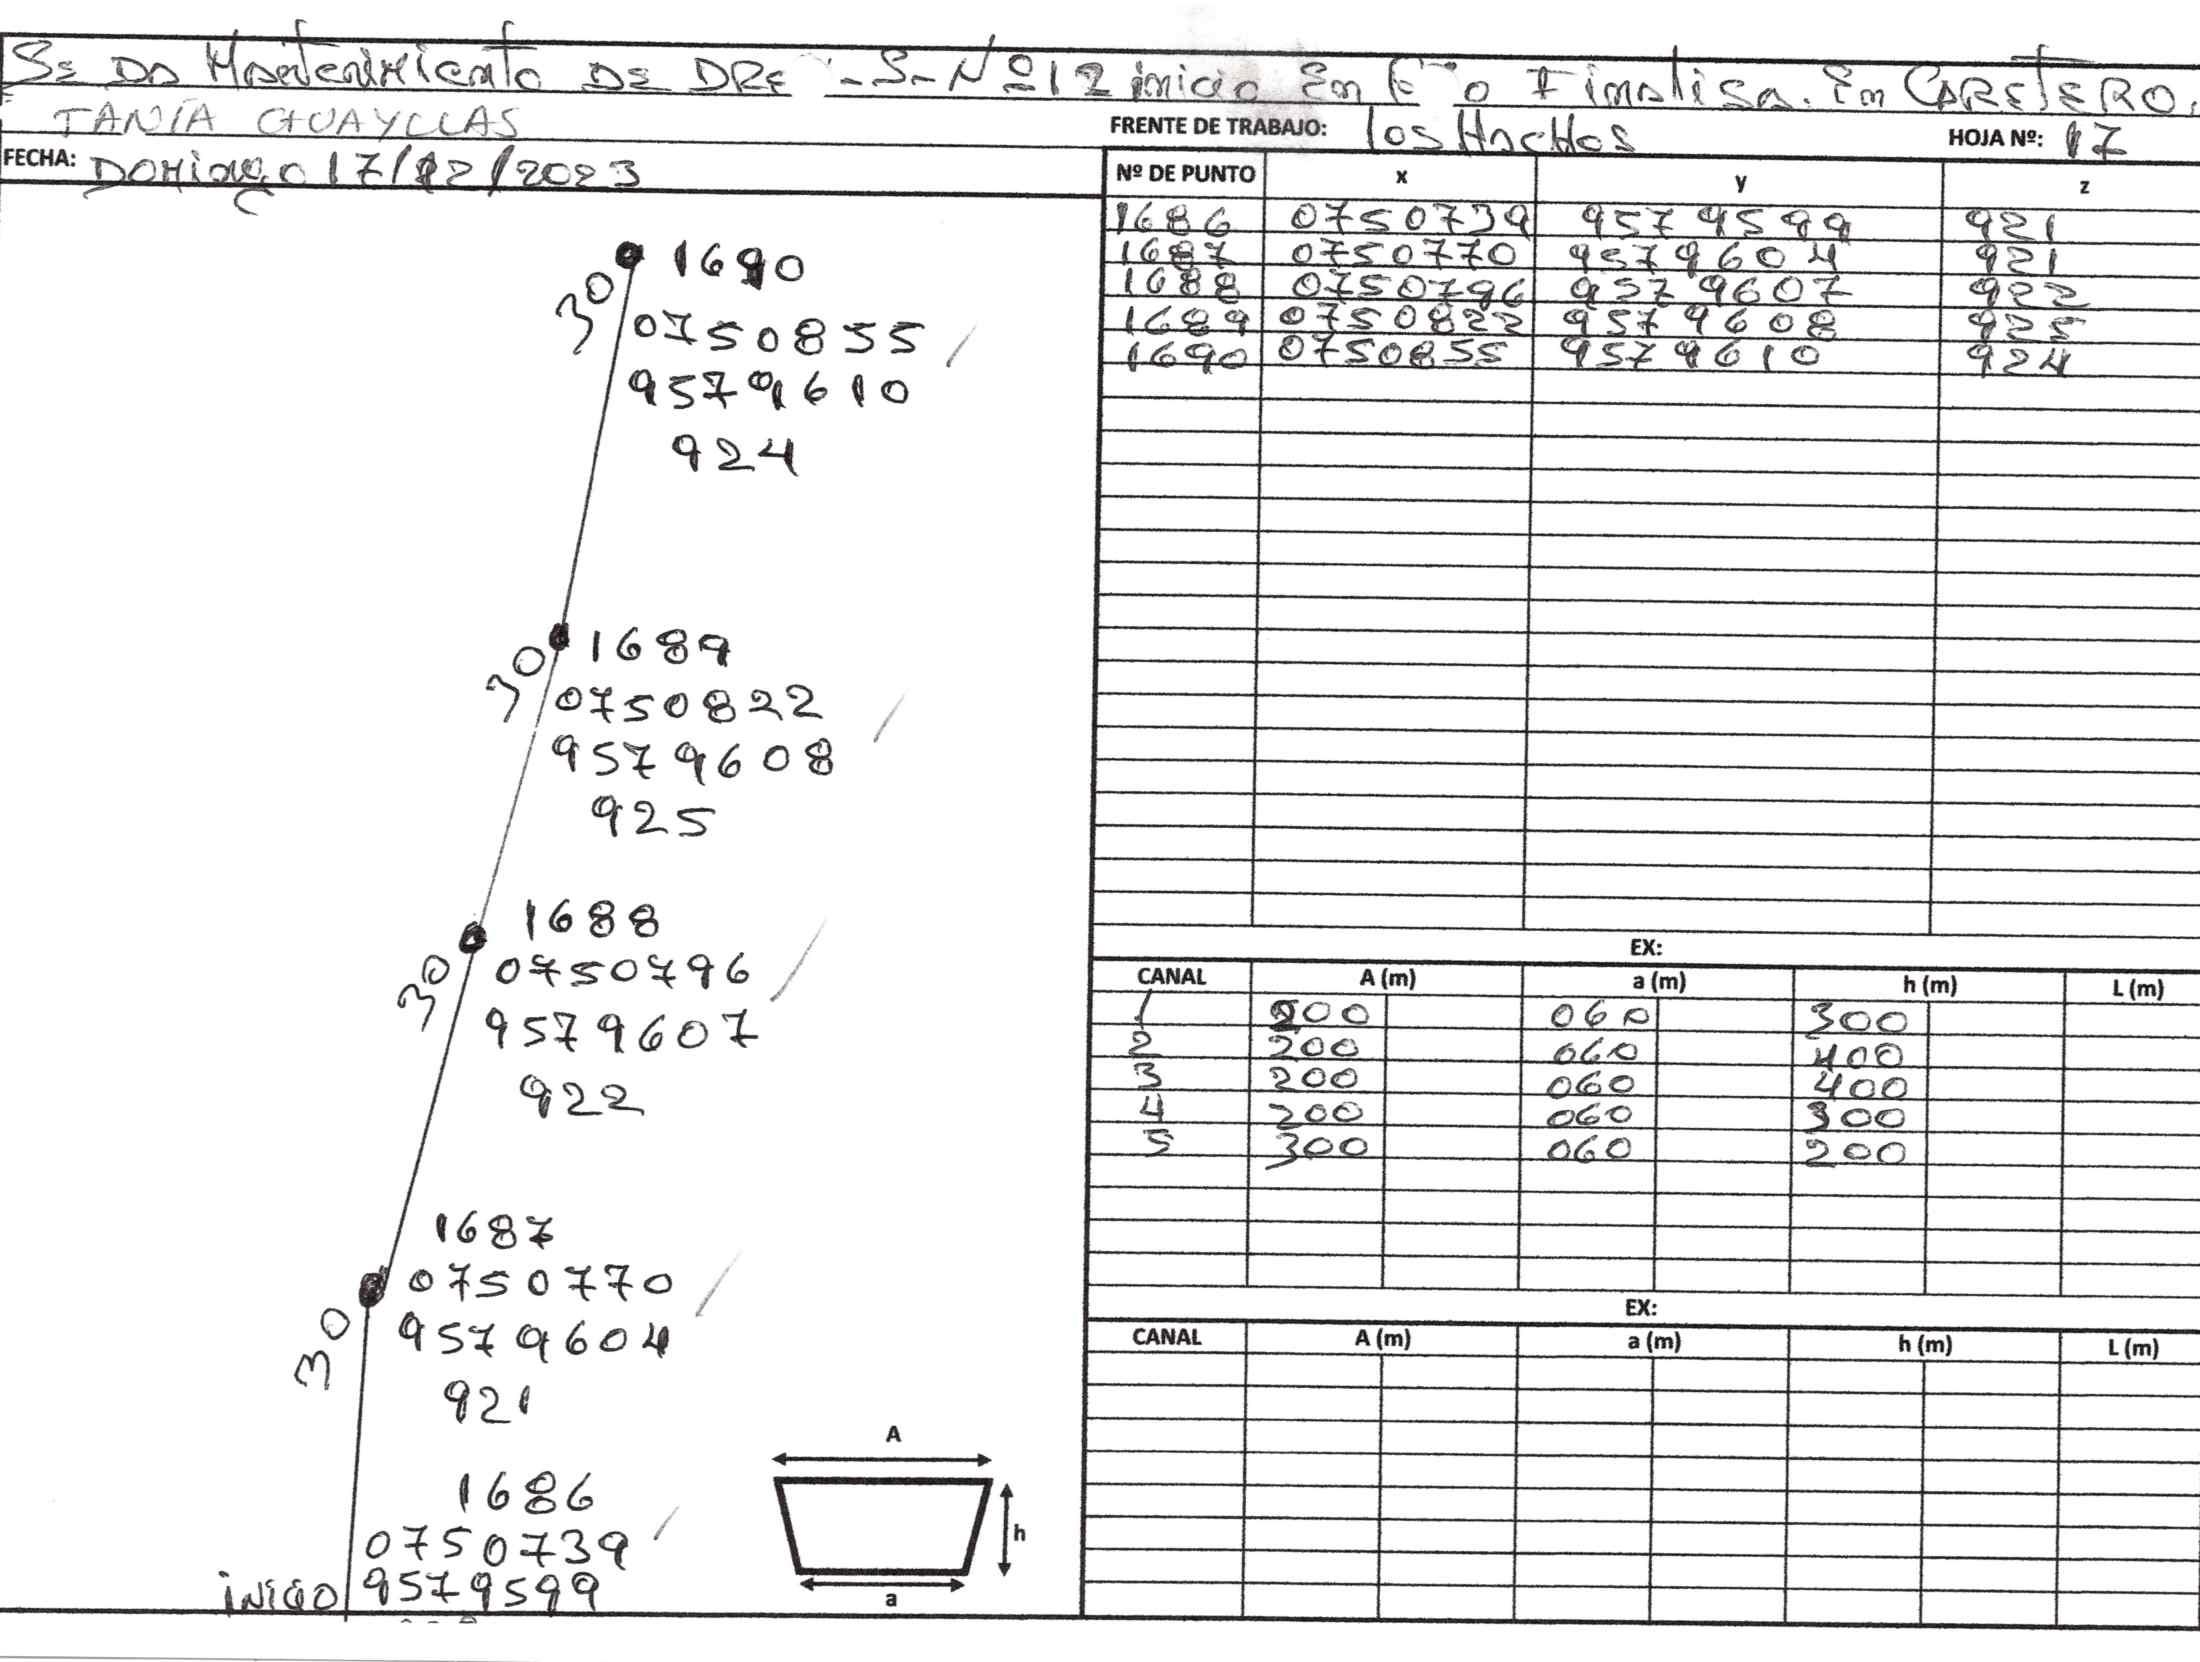 SE DA Mantenimiento DE DRE -S-Nº12 inicio En E o Finalisa. En CARETERO.
TANIA GUAYLLAS
FRENTE DE TRABAJO: los HACHOS
HOJA Nº: 17
FECHA: DOMingo 17/12/2023
Nº DE PUNTO x y z
1686 0750739 9579599 921
1687 0750770 9579604 921
1688 0750796 9579607 922
1689 0750822 9579608 925
1690 0750855 9579610 924
1690
30
0750855
9579610
924
1689
30
0750822
9579608
925
1688
30
0750796
9579607
922
1687
30
0750770
9579604
921
1686
0750739
inicio 9579599
A
h
a
EX:
CANAL A (m) a (m) h (m) L (m)
1 200 060 300
2 200 060 400
3 200 060 400
4 200 060 300
5 300 060 200
EX:
CANAL A (m) a (m) h (m) L (m)